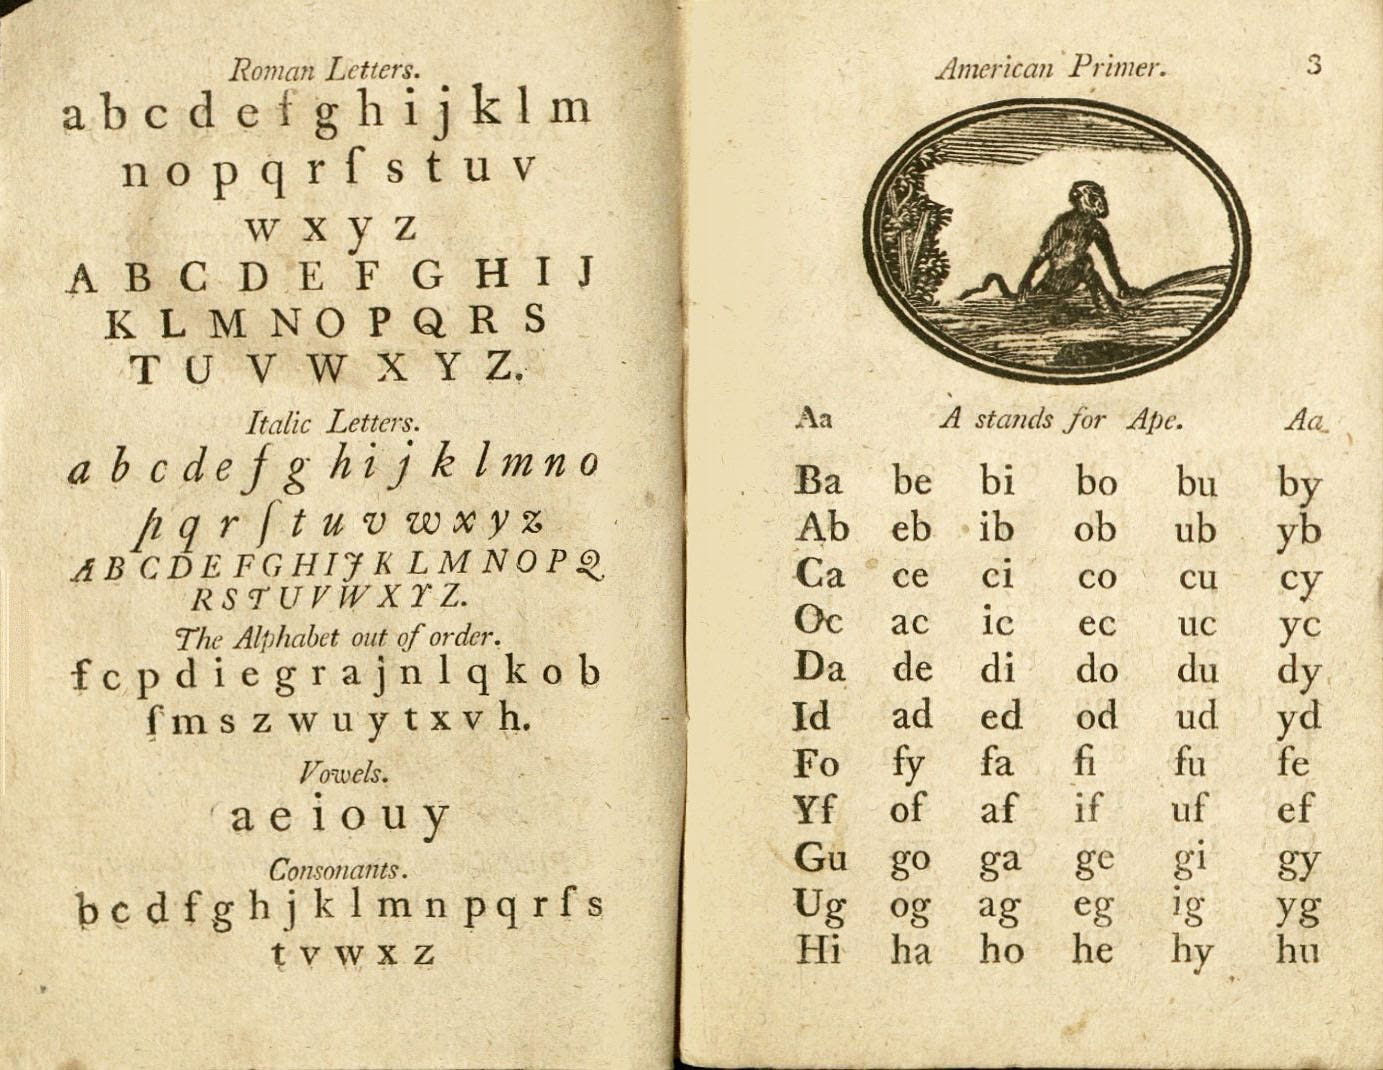 Roman Letters.
a b c d e f g h i j k l m
n o p q r ſ s t u v
w x y z
A B C D E F G H I J
K L M N O P Q R S
T U V W X Y Z.
Italic Letters.
a b c d e f g h i j k l m n o
p q r ſ t u v w x y z
A B C D E F G H I J K L M N O P Q
R S T U V W X Y Z.
The Alphabet out of order.
f c p d i e g r a j n l q k o b
ſ m s z w u y t x v h.
Vowels.
a e i o u y
Consonants.
b c d f g h j k l m n p q r ſ s
t v w x z
American Primer. 3
Aa A stands for Ape. Aa
Ba be bi bo bu by
Ab eb ib ob ub yb
Ca ce ci co cu cy
Oc ac ic ec uc yc
Da de di do du dy
Id ad ed od ud yd
Fo fy fa fi fu fe
Yf of af if uf ef
Gu go ga ge gi gy
Ug og ag eg ig yg
Hi ha ho he hy hu